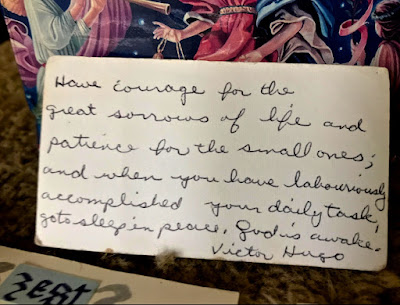 Have courage for the
great sorrows of life and
patience for the small ones;
and when you have labouriously
accomplished your daily task,
go to sleep in peace. God is awake.
Victor Hugo